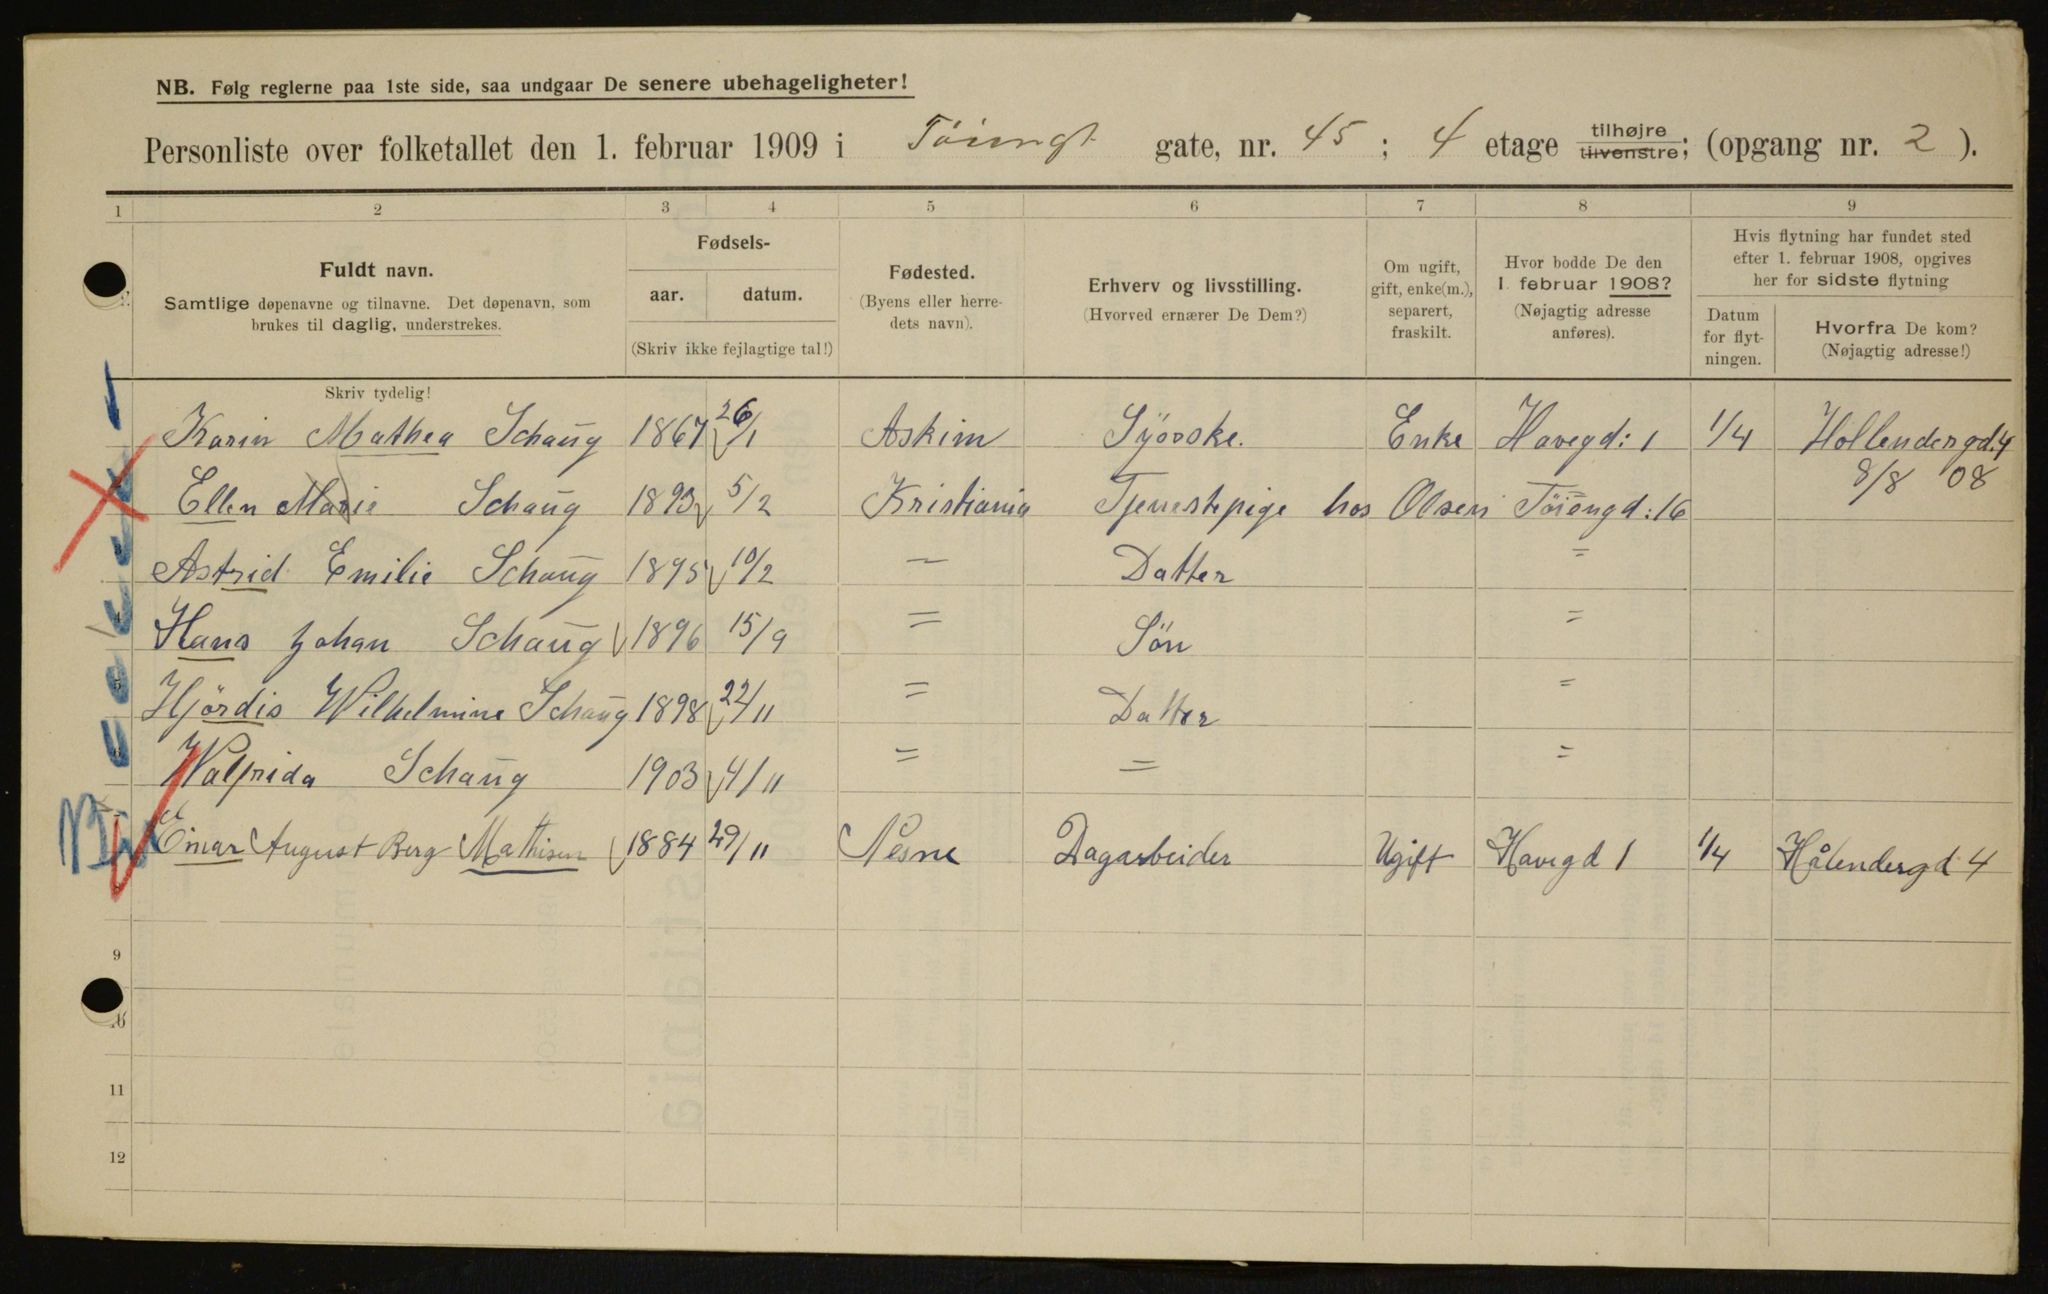 NB. Følg reglerne paa 1ste side, saa undgaar De senere ubehageligheter!
Personliste over folketallet den 1. februar 1909 i Töiengt gate, nr. 45; 4 etage tilhøjre tilvenstre; (opgang nr. 2).
1 2 3 4 5 6 7 8 9
Fuldt navn.
Samtlige døpenavne og tilnavne. Det døpenavn, som
brukes til daglig, understrekes.
Fødsels-
aar. datum.
(Skriv ikke fejlagtige tal!)
Fødested.
(Byens eller herre-
dets navn).
Erhverv og livsstilling.
(Hvorved ernærer De Dem?)
Om ugift,
gift, enke(m.),
separert,
fraskilt.
Hvor bodde De den
1. februar 1908?
(Nøjagtig adresse
anføres).
Hvis flytning har fundet sted
efter 1. februar 1908, opgives
her for sidste flytning
Datum
for flyt-
ningen.
Hvorfra De kom?
(Nøjagtig adresse!)
Skriv tydelig!
Karin Mathea Schaug 1867 26/1 Askim Syerske. Enke Havegd: 1 1/4 Hollendergd. 4
8/8 08
Ellen Marie Schaug 1893 5/2 Kristiania Tjenestepige hos Olsen Töiengd: 16
Astrid Emilie Schaug 1895 10/2 — Datter =
Hans Johan Schaug 1896 15/9 = Sön =
Hjördis Wilhelmine Schaug 1898 22/11 = Datter =
Walfrida Schaug 1903 4/11 = = =
Einar August Berg Mathisen 1884 29/11 Nesne Dagarbeider Ugift Havegd 1 1/4 Hålendergd 4
9
10
11
12